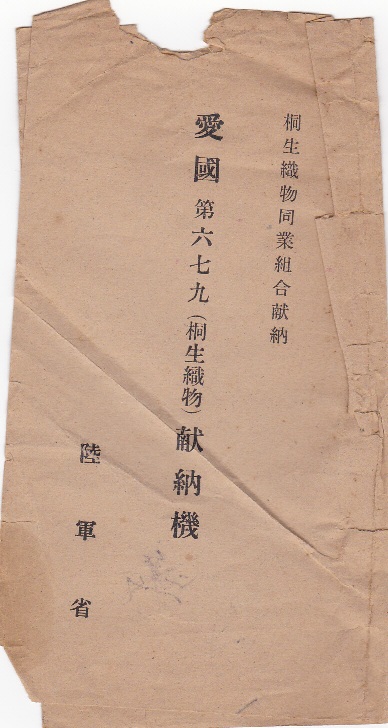 桐生織物同業組合献納
愛國第六七九(桐生織物)献納機
陸軍省